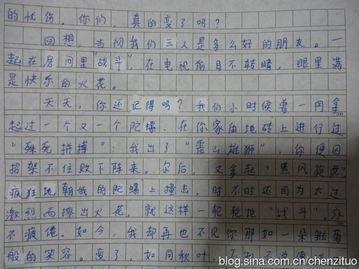 的忧伤。你们，真的变了吗？
回想，当初我们三人是多么好的朋友。一
起在房间里“战斗”，在电视前目不转睛，眼里满
是快乐的火花。
天天，你还记得吗？我们小时候曾一同拿
起过一个又一个陀螺，在你家的地砖上进行过
“殊死拼搏”：我出了“雷么雄狮”，你便因
招架不住败下阵来。尔后，又拿起“黑风
疯狂地朝我的陀螺上撞击，时不时还因为太过
激烈而擦出火花。就这样一轮轮地“战斗”，
不疲倦。如今，我却再也不见你那如一朵鲜花
般的笑容。变了，如同秋叶
blog.sina.com.cn/chenzituo